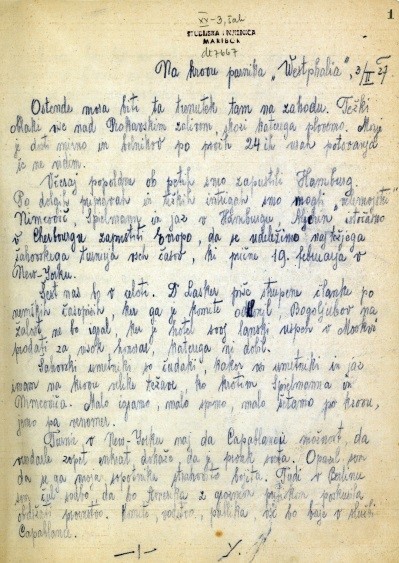 1
XX-3, šah
STUDIJSKA KNJIŽNICA
MARIBOR
Na krovu parnika „Westphalia", 3/II 27
Ostende mora biti ta trenutek tam na zahodu. Težki
oblaki vise nad Biskajskim zalivom, skozi katerega plovemo. Morje
je dosti mirno in bolnikov po prvih 24ih urah potovanja
še ne vidim.
Včeraj popoldne ob petih smo zapustili Hamburg.
Po dolgih pripravah in težkih intrigah smo mogli
Nimcovič, Spielmann in jaz v Hamburgu, Aljehin istočasno
v Cherbourgu zapustiti Evropo, da se udeležimo najtežjega
šahovskega turnirja vseh časov, ki prične 19. februarja v
New-Yorku.
Šest nas bo v celoti. Dr Lasker piše strupene članke po
nemških časopisih, ker ga je komite odklonil, Bogoljubov na
žalost ne bo igral, ker je hotel svoj lanski uspeh v Moskvi
prodati za visok honorar, katerega ni dobil.
Šahovski umetniki so čudaki, kakor vsi umetniki in jaz
imam na krovu velike težave, ko krotim Spielmanna in
Nimcoviča. Malo igramo, malo spimo, malo šetamo po krovu,
jemo pa venomer.
Turnir v New-Yorku naj da Capablanci možnost, da
vnovič zopet enkrat dokaže da je prvak sveta. Opazil sem
da se ga moja sopotnika strahovito bojita. Tudi v Berlinu
sem čul sodbo, da bo Amerika z pritiskom poskušala
obdržati prvenstvo. Komite, vodstvo, publika vse bo baje v službi
Capablance.
—1—